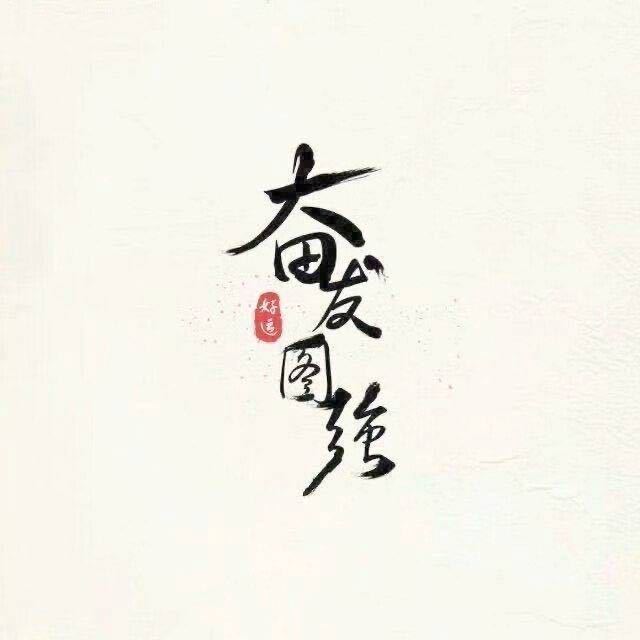 奋发图强
好运